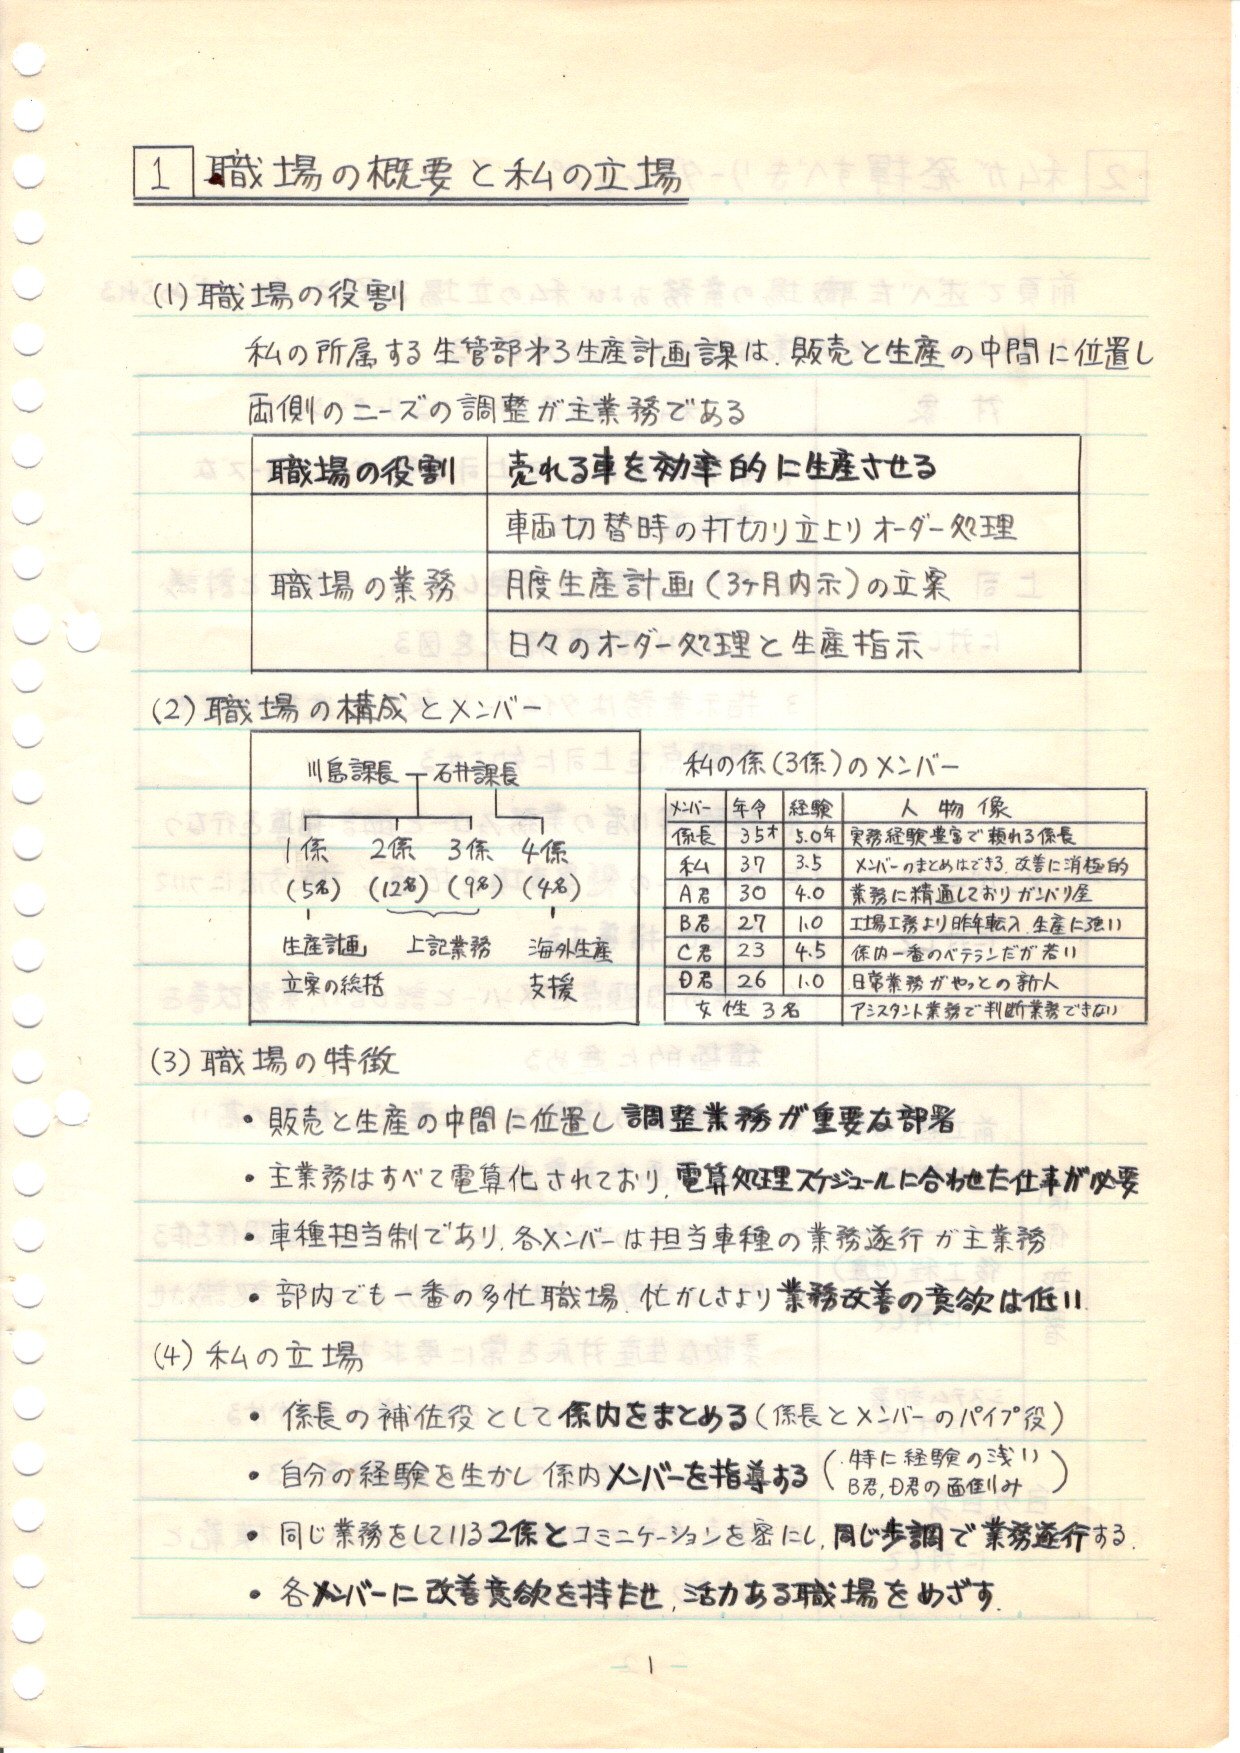 1 職場の概要と私の立場
(1) 職場の役割
私の所属する生管部オ3生産計画課は、販売と生産の中間に位置し
両側のニーズの調整が主業務である
職場の役割 売れる車を効率的に生産させる
車両切替時の打切り立上りオーダー処理
職場の業務 月度生産計画(3ヶ月内示)の立案
日々のオーダー処理と生産指示
(2) 職場の構成とメンバー
川島課長 石井課長
1係 2係 3係 4係
(5名) (12名) (9名) (4名)
生産計画 上記業務 海外生産
立案の総括 支援
私の係(3係)のメンバー
メンバー 年令 経験 人物像
係長 35才 5.0年 実務経験豊富で頼れる係長
私 37 3.5 メンバーのまとめはできる、改善に消極的
A君 30 4.0 業務に精通しておりガンバリ屋
B君 27 1.0 工場工務より昨年転入、生産に強い
C君 23 4.5 係内一番のベテランだが若い
D君 26 1.0 日常業務がやっとの新人
女性3名 アシスタント業務で判断業務できない
(3) 職場の特徴
・販売と生産の中間に位置し調整業務が重要な部署
・主業務はすべて電算化されており、電算処理スケジュールに合わせた仕事が必要
・車種担当制であり、各メンバーは担当車種の業務遂行が主業務
・部内でも一番の多忙職場、忙がしさより業務改善の意欲は低い
(4) 私の立場
・係長の補佐役として係内をまとめる(係長とメンバーのパイプ役)
・自分の経験を生かし係内メンバーを指導する(特に経験の浅い
B君,D君の面倒み)
・同じ業務をしている2係とコミニケーションを密にし、同じ歩調で業務遂行する。
・各メンバーに改善意欲を持たせ、活力ある職場をめざす。
- 1 -